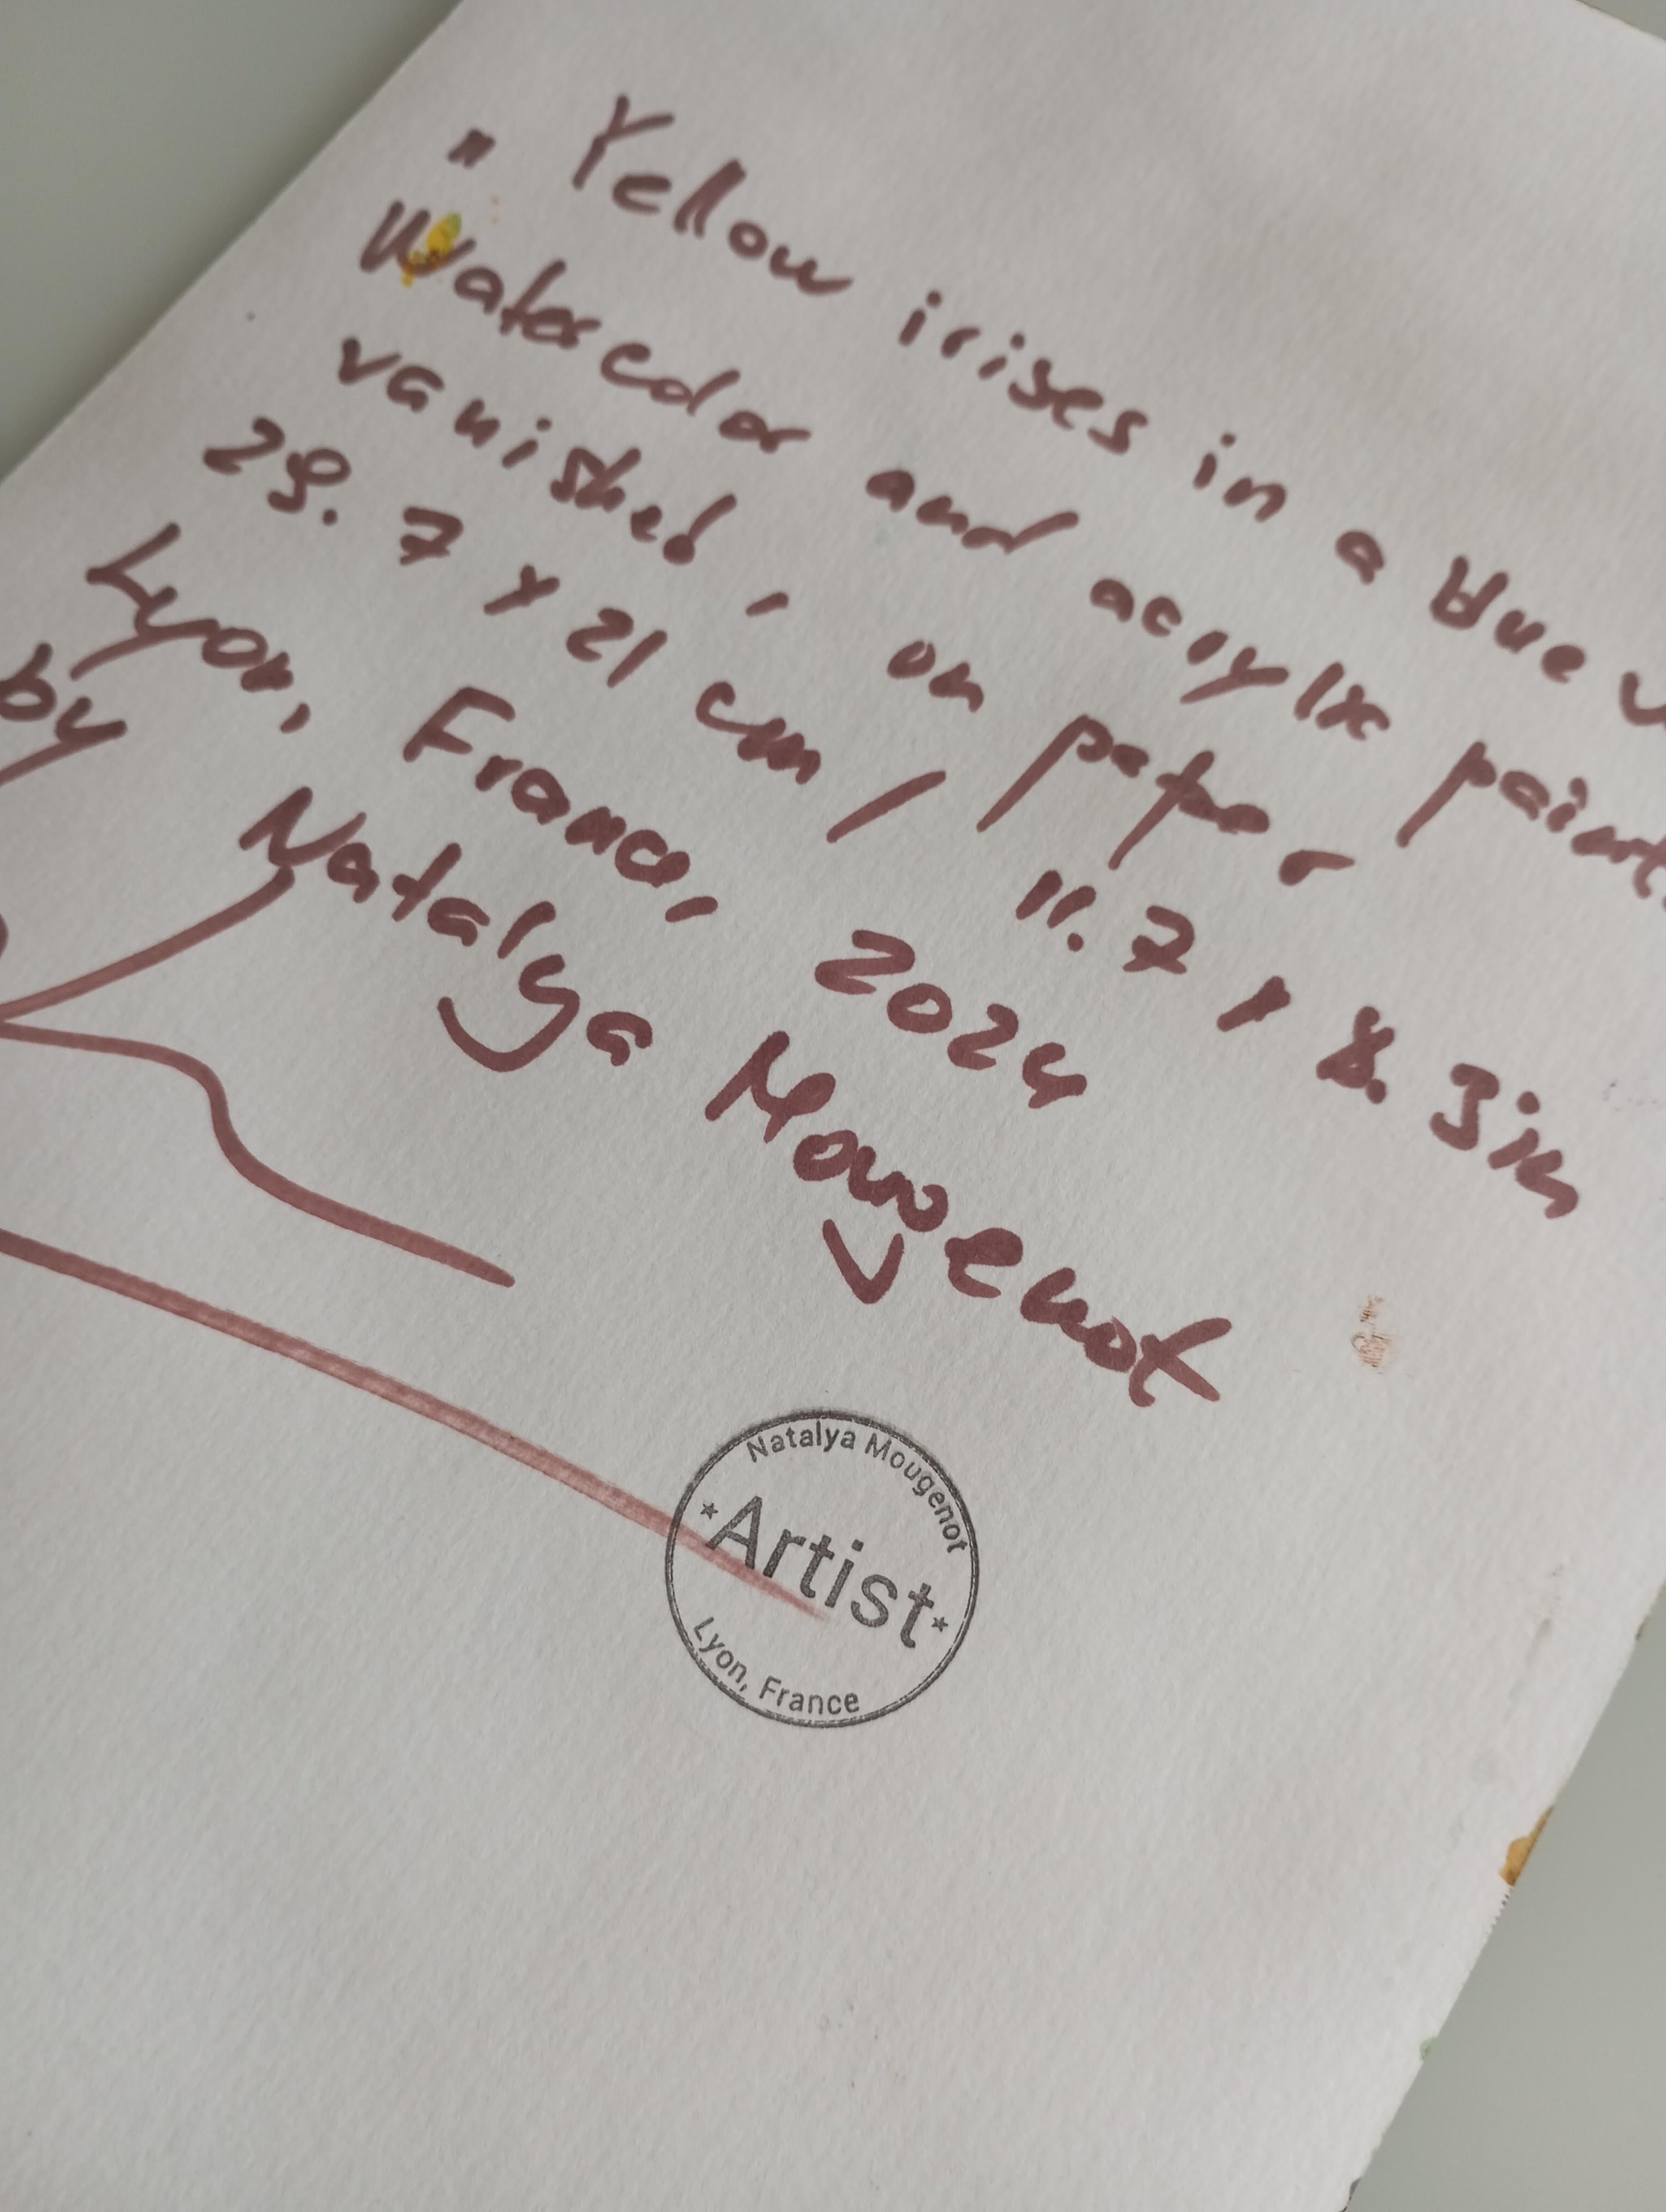 " Yellow irises in a blue v
Watercolor and acrylic paint
vanished, on paper
29.7 x 21 cm / 11.7 x 8.3 in
Lyon, France, 2024
by Natalya Mougenot
Natalya Mougenot
*Artist*
Lyon, France